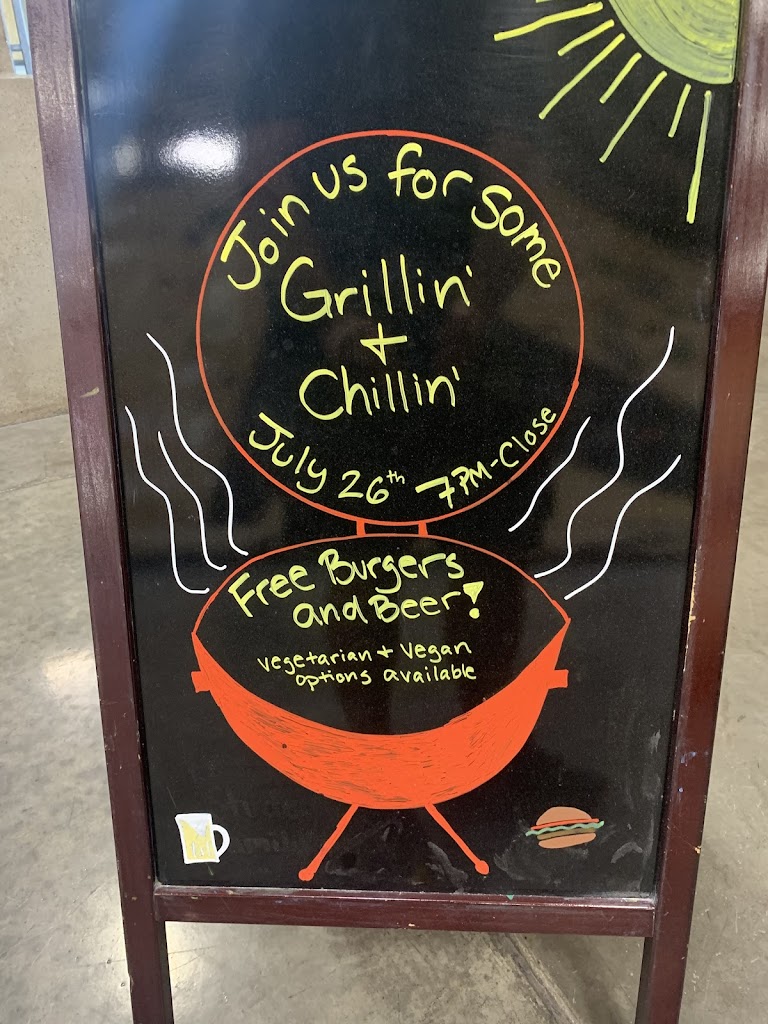 Join us for some
Grillin'
+
Chillin'
July 26th 7PM-Close
Free Burgers
and Beer!
vegetarian + vegan
options available